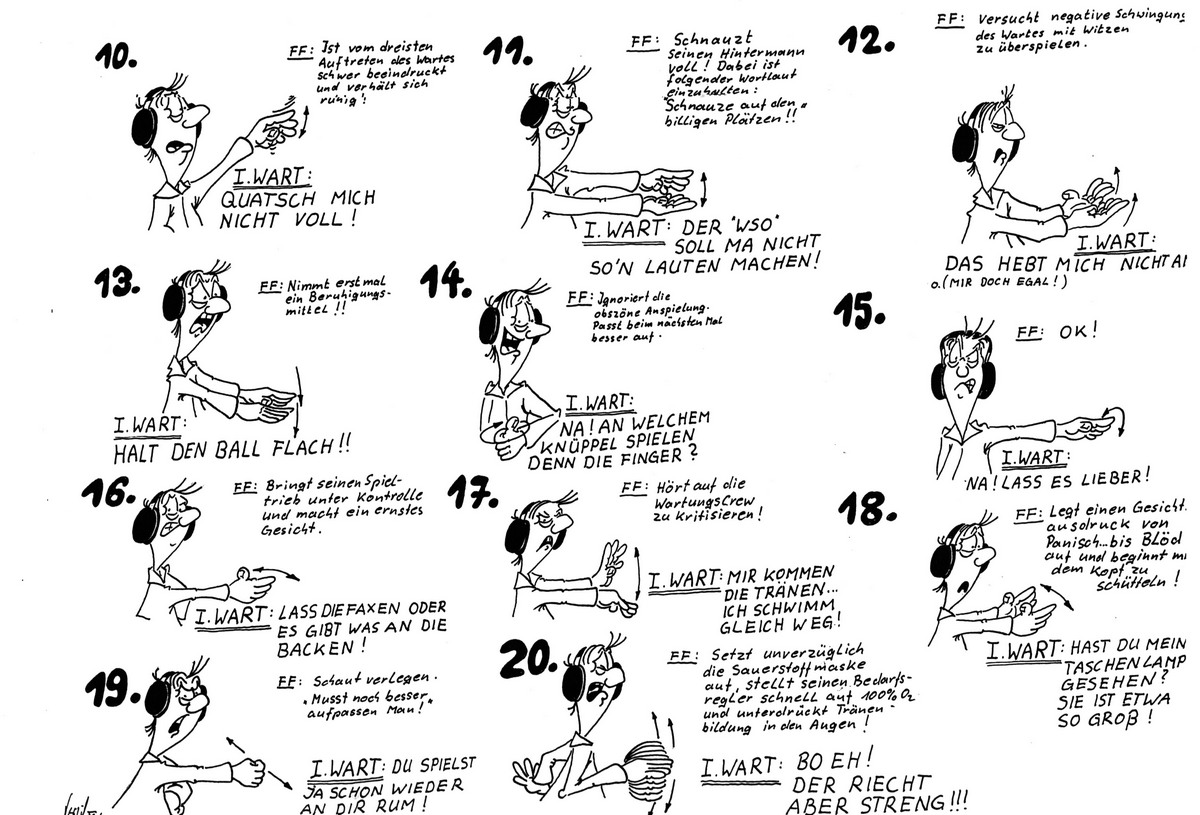 10.
FF: Ist vom dreisten
Auftreten des Wartes
schwer beeindruckt
und verhält sich
ruhig!
I.WART:
QUATSCH MICH
NICHT VOLL!
11.
FF: Schnauzt
seinen Hintermann
voll! Dabei ist
folgender Wortlaut
einzuhalten:
"Schnauze auf den
billigen Plätzen!!
I.WART: DER "WSO"
SOLL MA NICHT
SO'N LAUTEN MACHEN!
12.
FF: Versucht negative Schwingun
des Wartes mit Witzen
zu überspielen.
I.WART:
DAS HEBT MICH NICHT A
o.(MIR DOCH EGAL!)
13.
FF: Nimmt erst mal
ein Beruhigungs-
mittel!!
I.WART:
HALT DEN BALL FLACH!!
14.
FF: Ignoriert die
obszöne Anspielung.
Passt beim nächsten Mal
besser auf.
I.WART:
NA! AN WELCHEM
KNÜPPEL SPIELEN
DENN DIE FINGER?
15.
FF: OK!
I.WART:
NA! LASS ES LIEBER!
16.
FF: Bringt seinen Spiel-
trieb unter Kontrolle
und macht ein ernstes
Gesicht.
I.WART: LASS DIE FAXEN ODER
ES GIBT WAS AN DIE
BACKEN!
17.
FF: Hört auf die
Wartungscrew
zu kritisieren!
I.WART: MIR KOMMEN
DIE TRÄNEN...
ICH SCHWIMM
GLEICH WEG!
18.
FF: Legt einen Gesicht.
ausdruck von
Panisch...bis Blöd
auf und beginnt mi
dem Kopf zu
schütteln!
I.WART: HAST DU MEIN
TASCHENLAMP
GESEHEN?
SIE IST ETWA
SO GROß!
19.
FF: Schaut verlegen.
"Musst noch besser
aufpassen Man!"
I.WART: DU SPIELST
JA SCHON WIEDER
AN DIR RUM!
20.
FF: Setzt unverzüglich
die Sauerstoffmaske
auf, stellt seinen Bedarfs-
regler schnell auf 100% O2
und unterdrückt Tränen-
bildung in den Augen!
I.WART: BO EH!
DER RIECHT
ABER STRENG!!!